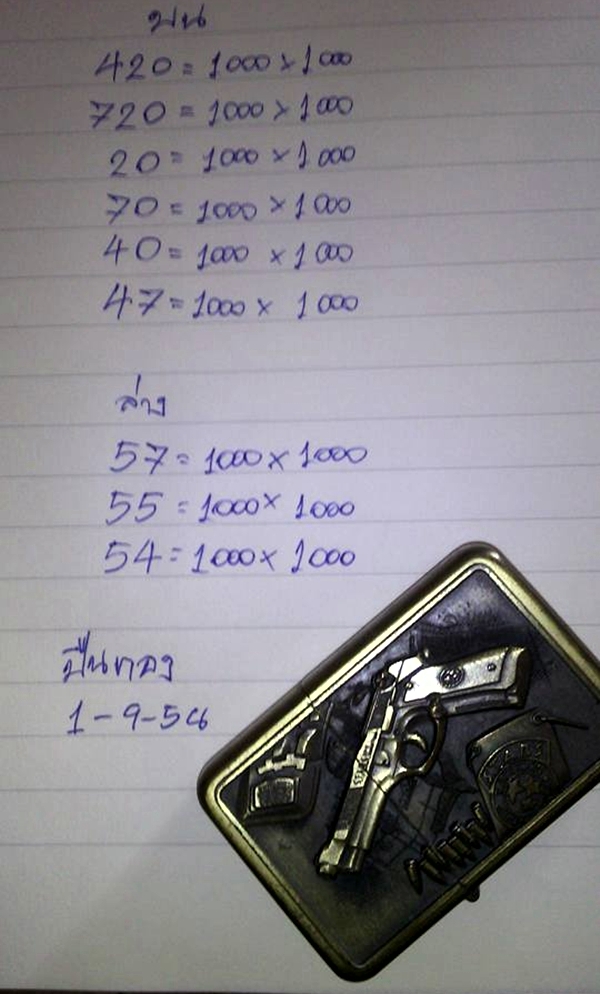 บน
420 = 1000 × 1000
720 = 1000 × 1000
20 = 1000 × 1000
70 = 1000 × 1000
40 = 1000 × 1000
47 = 1000 × 1000
ล่าง
57 = 1000 × 1000
55 = 1000 × 1000
54 = 1000 × 1000
ปืนทอง
1-9-58
S.T.A.R.S.